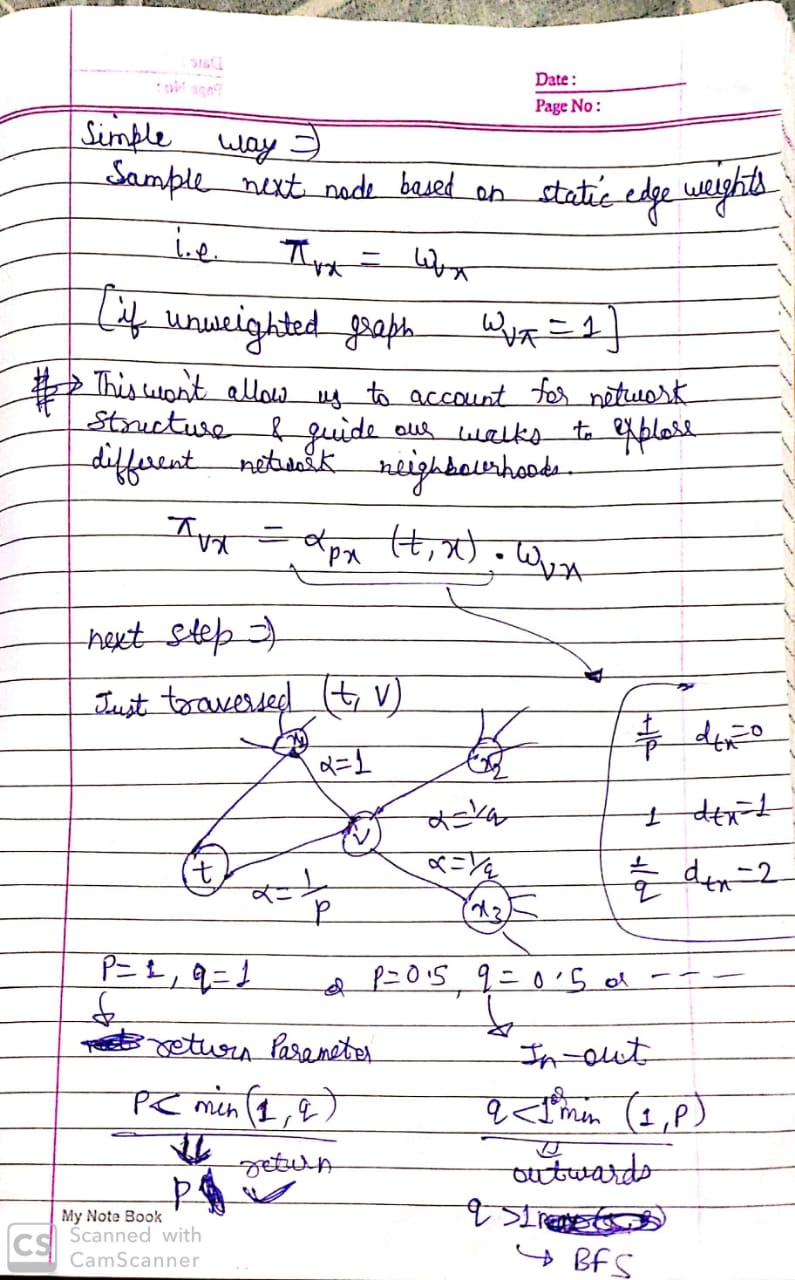 Date :
Page No :
Simple way ⇒
Sample next node based on static edge weights
i.e. π_vx = w_vx
[if unweighted graph w_vx = 1]
# → This won't allow us to account for network
structure & guide our walks to explore
different network neighbourhoods.
π_vx = α_px (t, x) . w_vx
next step ⇒
Just traversed (t, v)
x1 α=1 x2
1/p d_tx=0
v α=1/q
1 d_tx=1
t α=1/p α=1/q
1/q d_tx=2
x3
P=1, q=1 or P=0.5, q=0.5 or ---
return Parameter In-out
P< min(1, q) q<1 min (1, P)
return outwards
P ✓ q >1
↳ BFS
My Note Book
CS Scanned with
CamScanner